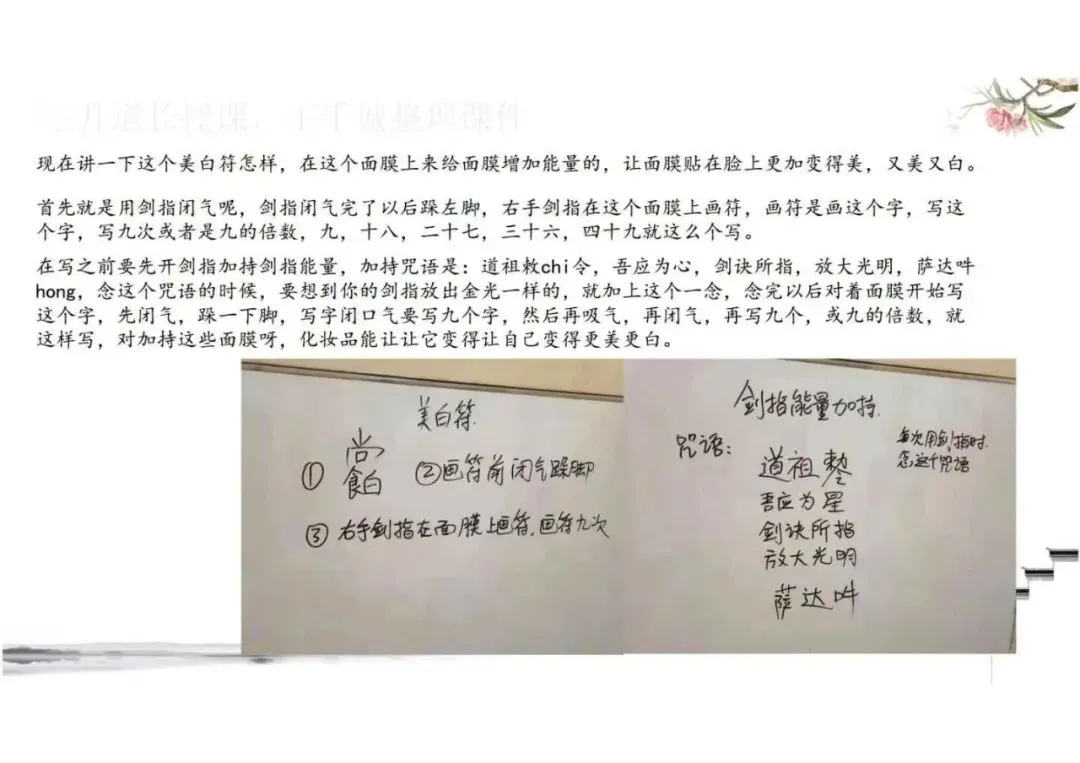 道长授课,整理课件
现在讲一下这个美白符怎样，在这个面膜上来给面膜增加能量的，让面膜贴在脸上更加变得美，又美又白。
首先就是用剑指闭气呢，剑指闭气完了以后跺左脚，右手剑指在这个面膜上画符，画符是画这个字，写这
个字，写九次或者是九的倍数，九，十八，二十七，三十六，四十九就这么个写。
在写之前要先开剑指加持剑指能量，加持咒语是：道祖敕chi令，吾应为心，剑诀所指，放大光明，萨达吽
hong，念这个咒语的时候，要想到你的剑指放出金光一样的，就加上这个一念，念完以后对着面膜开始写
这个字，先闭气，跺一下脚，写字闭口气要写九个字，然后再吸气，再闭气，再写九个，或九的倍数，就
这样写，对加持这些面膜呀，化妆品能让让它变得让自己变得更美更白。
美白符.
① 尚
食白
②画符前闭气跺脚
③ 右手剑指在面膜上画符,画符九次
剑指能量加持.
咒语:
道祖
吾应为星
剑诀所指
放大光明
萨达吽
每次用剑指时.
念这个咒语